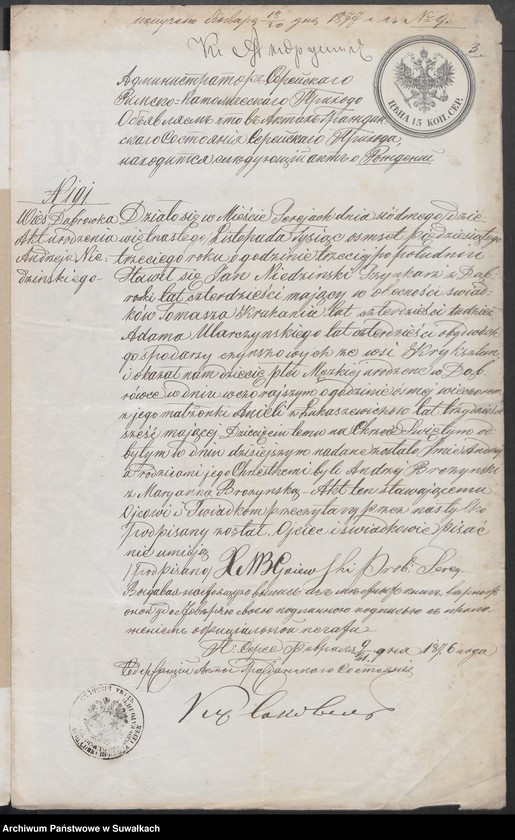 получено Января 18/30 дня 1877 г. за № 4.
3
Администраторъ Серейскаго
Римско-Католическаго Прихода
Объявляетъ что въ Актахъ Граждан
скаго Состоянія Серейскаго Прихода,
находится слѣдующій актъ о Рожденіи
ЦѢНА 15 КОП. СЕР.
N 191
Wieś Dąbrowka
Akt urodzenia
Andrzeja Nie-
dzinskiego
Działo się w Mieście Serejach dnia siódmego dzie
więtnastego Listopada tysiąc osmset pięćdziesiątego
trzeciego roku o godzinie trzeciej po południu
Stawił się Jan Niedzinski Szynkarz z Dąb
rowki lat czterdzieści mający w obecności świad
ków Tomasza lat czterdzieści tudzież
Adama Marczynskiego lat czterdzieści obydwóch
gospodarzy czynszowych ze wsi
i okazał nam dziecię płci Męzkiej urodzone w Dąb
rówce w dniu wczorajszym o godzinie ósmej wieczorem
z jego małżonki Anieli z Łukaszewiczów lat trzydzieści
sześć mającej Dziecięciu temu na Chrzcie Świętym od
bytym w dniu dzisiejszym nadane zostało Imie Andrzej
a rodzicami jego Chrzestnemi byli Andrzej Brozynski
z Maryanną Brozynską - Akt ten stawającemu
Ojcowi i Świadkom przeczytany przez nas tylko
Podpisany został, Ojciec i świadkowie pisać
nie umieją
(Podpisano) X MB Gsiewski Prob. Serey
Выдавая настоящую выпись изъ книгъ
удостовѣряю своею подлинною подписью съ прило
женіемъ оффиціальной печати
П. Сереѣ Февраля 9/21 дня 1876 года
Содержащій Акты Гражданскаго Состоянія
Archiwum Państwowe w Suwałkach